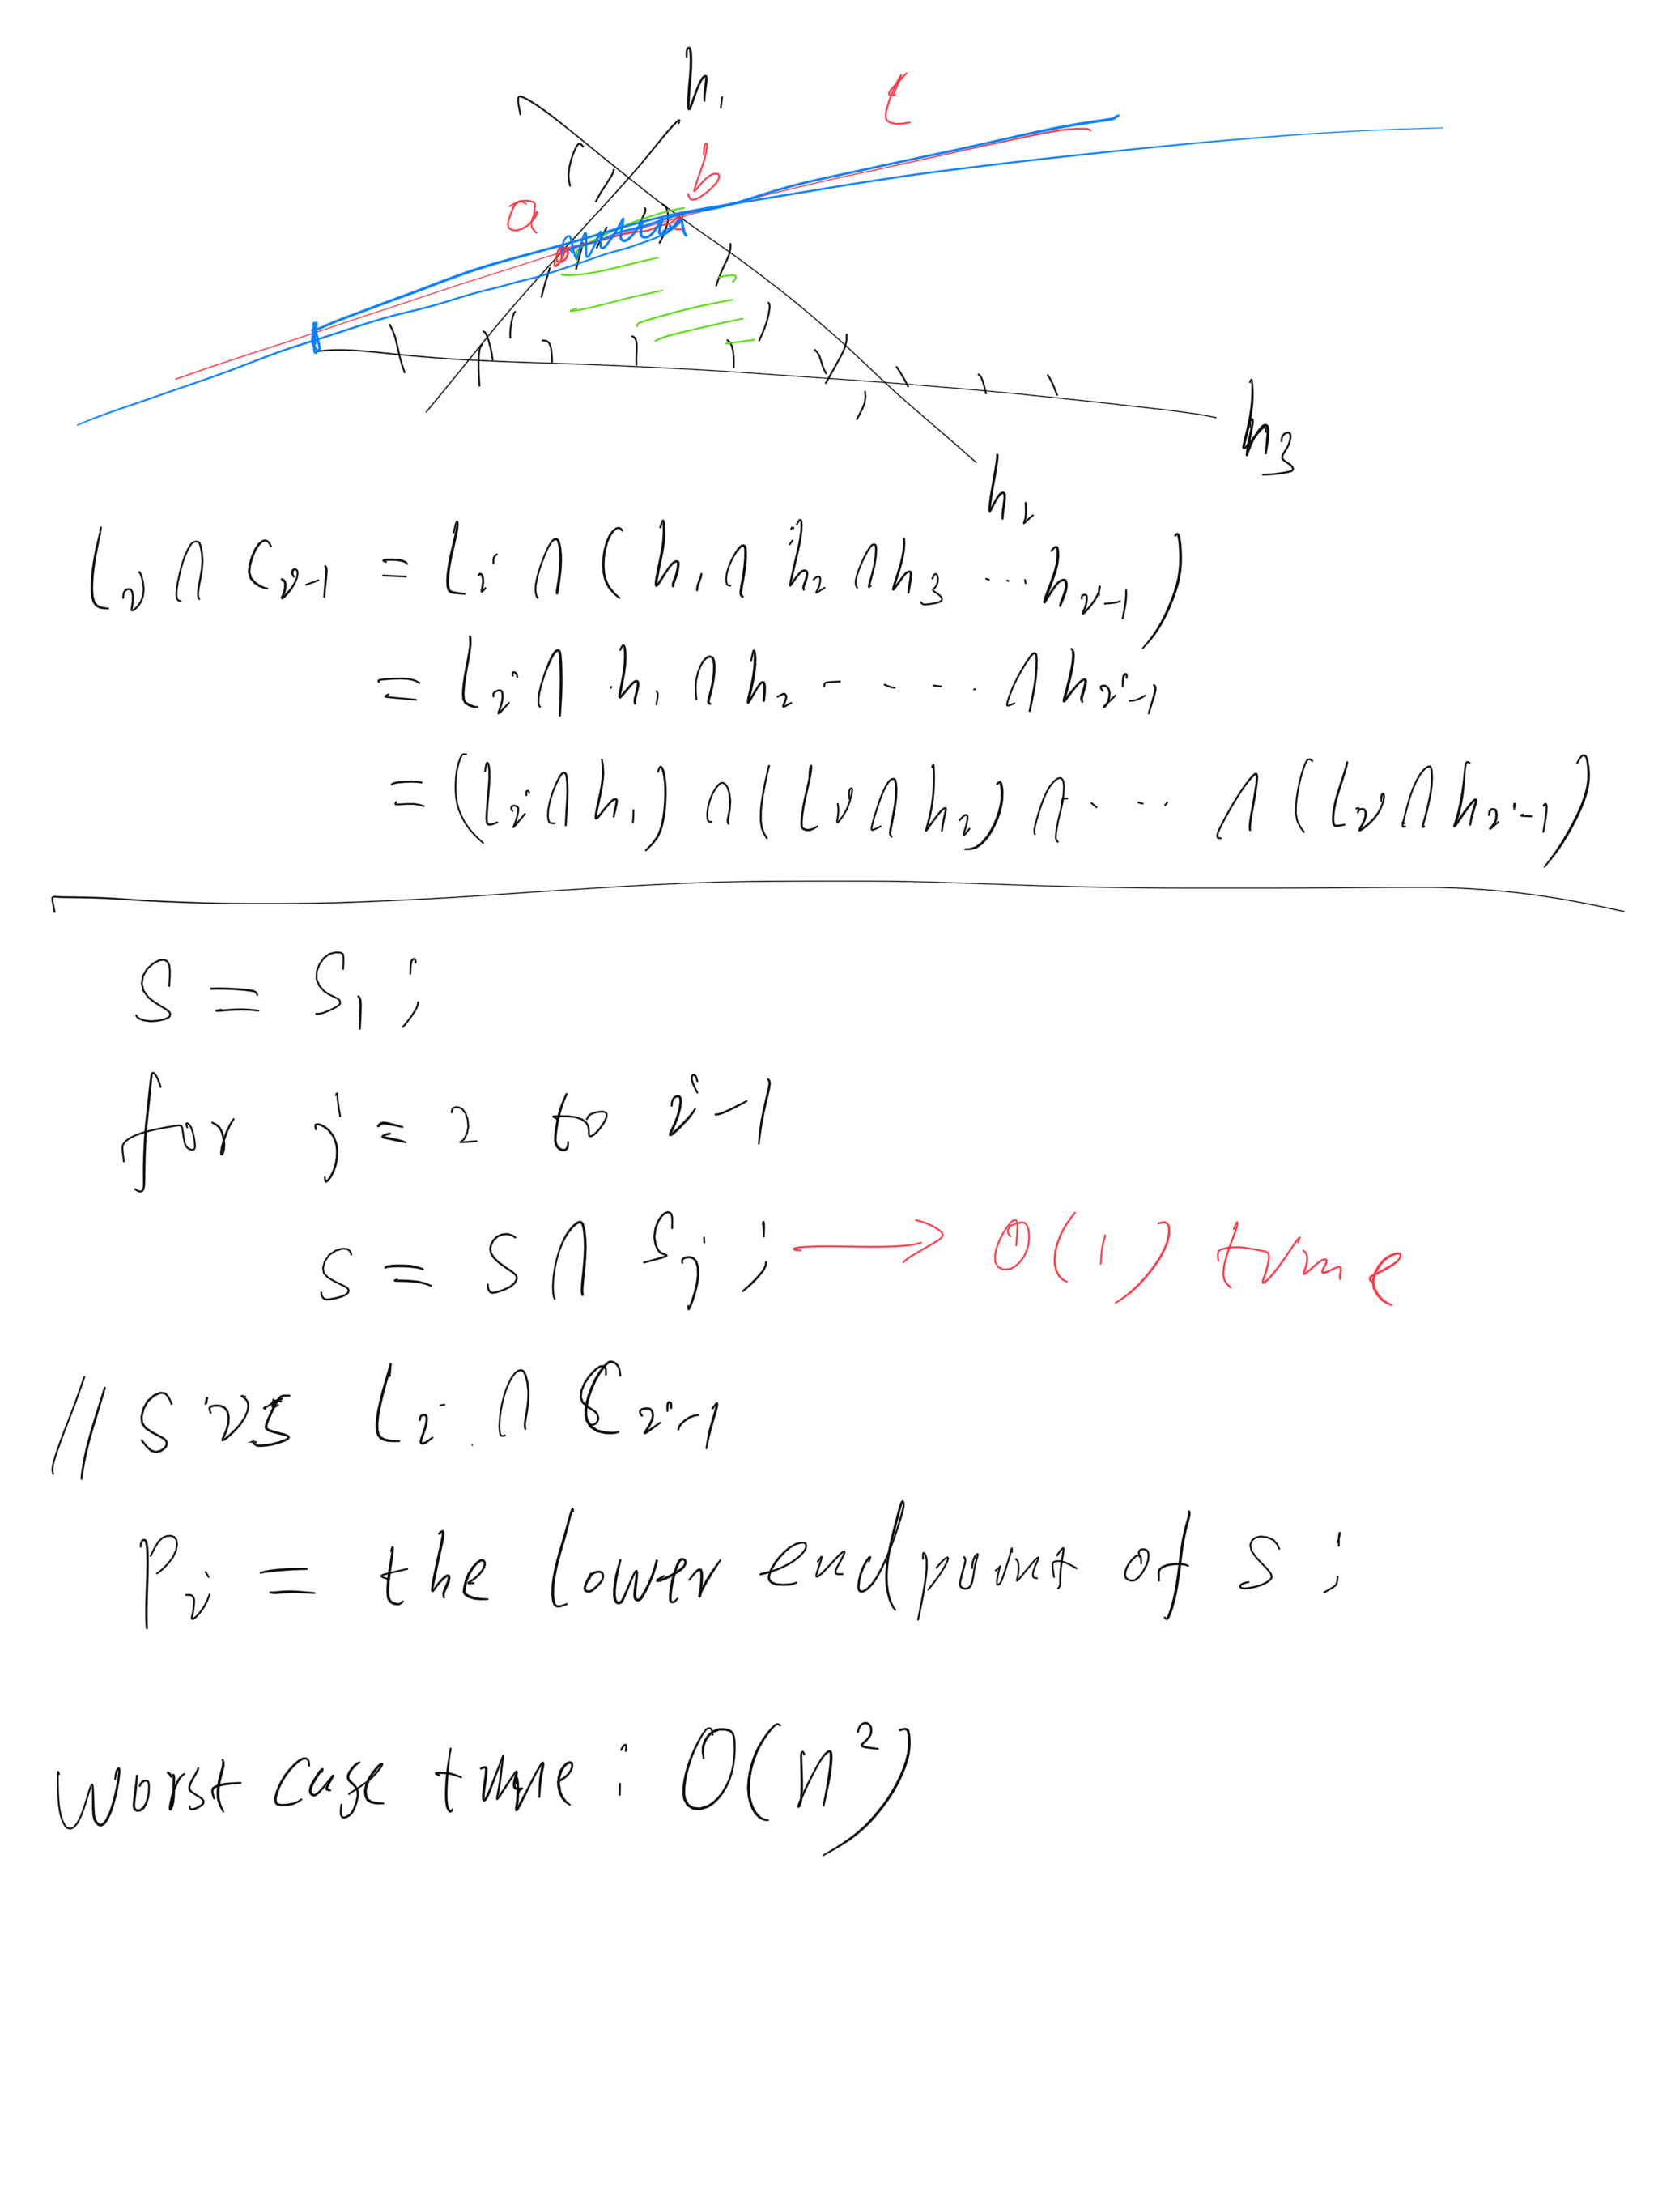 h₁
l
b
a
h₃
h₂
lᵢ ∩ Cᵢ₋₁ = lᵢ ∩ (h₁ ∩ h₂ ∩ h₃ ... hᵢ₋₁)
= lᵢ ∩ h₁ ∩ h₂ - - - . ∩ hᵢ₋₁
= (lᵢ ∩ h₁) ∩ (lᵢ ∩ h₂) ∩ ... ∩ (lᵢ ∩ hᵢ₋₁)
S = S₁ ;
for j = 2 to i-1
S = S ∩ Sⱼ ; → O(1) time
// S is lᵢ ∩ Cᵢ₋₁
Pᵢ = the lower endpoint of S ;
worst case time : O(n²)